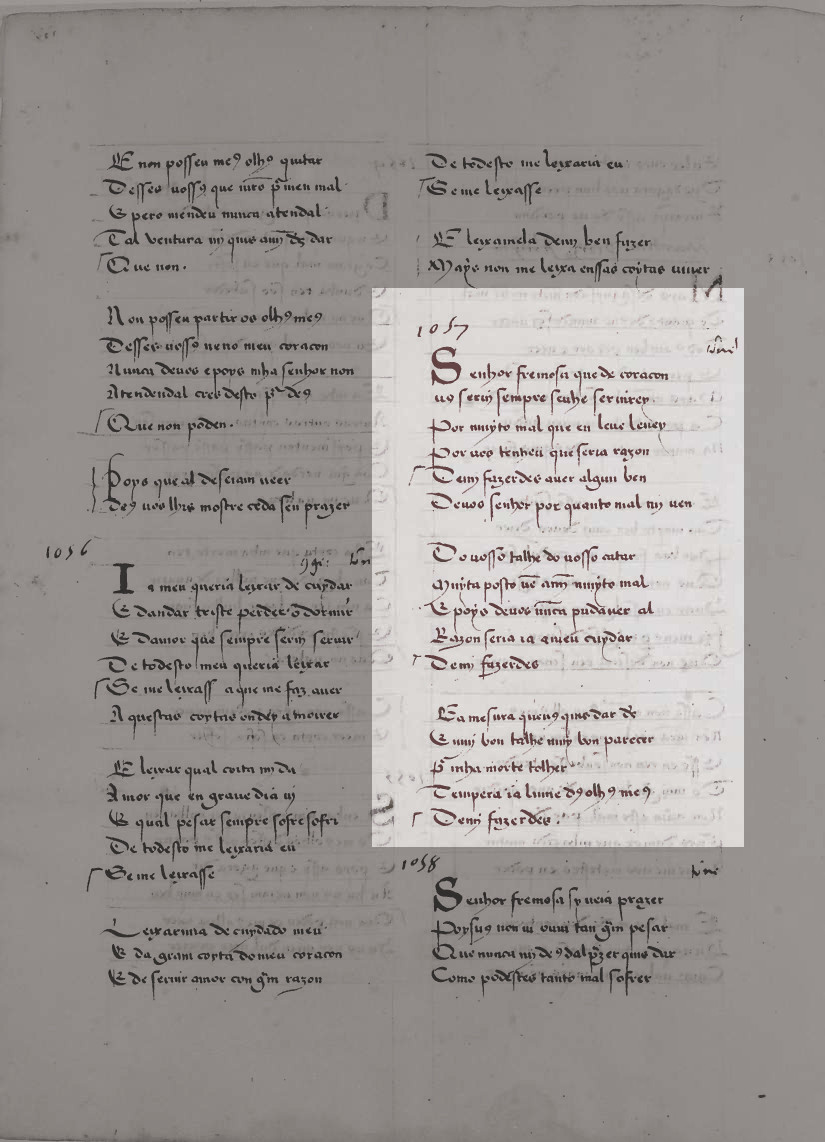 E non posseu me9 olh9 quitar
Desses voss9 que iuro p̃ men mal
E pero mendeu nunca atendal
Tal ventura mj quis amj d's dar
Que non.
Non posseu partir os olh9 me9
Desses voss9 neno meu coracon
Nunca devos epoys mha senhor non
Atendendal cres desto p̃ de9
Que non poden.
Poys que al deseiam veer
De9 vos lhis mostre ceda seu prazer
1056
Ia meu queria leixar de cuydar
E dandar triste perder o dormir
E damor que sempre servj servir
De todesto meu queria leixar
Se me leixass a que me faz auer
Aquestas coytas ondey a moirer
E leixar qual coita mj da
Amor que en graue dia uj
E qual pesar sempre sofre sofri
De todesto me leixaria eu
Se me leixasse
Leixarmia de cuydado meu
E da gram coyta do meu coracon
E de seruir amor con gm̃ razon
De todesto me leixaria eu
Se me leixasse
E leixamela demj ben fazer
Mays non me leixa enssas coytas uiuer
1057
Senhor fremosa que de coracon
u9 seruj sempre seruhe seruirey
Por muyto mal que eu leue leuey
Por uos tenheu que seria razon
Demj fazerdes auer algun ben
Deuos senhor por quanto mal mj uen
Do vosso talhe do vosso catar
Muyta posto ue amj muyto mal
E poys deuos nũca pudauer al
Razon seria ia ameu cuydar
Demj fazerdes
E a mesura queu9 quis dar de9
E muj bon talhe muj bon parecer
p̃ mha morte tolher
Tempera ia lume d9 olh9 me9
Demj fazerdes.
1058
Senhor fremosa sy ueia prazer
Poysu9 non ui ouui tan gm̃ pesar
Que nunca mj de9 dal p̃zer quis dar
Como podestes tanto mal sofrer